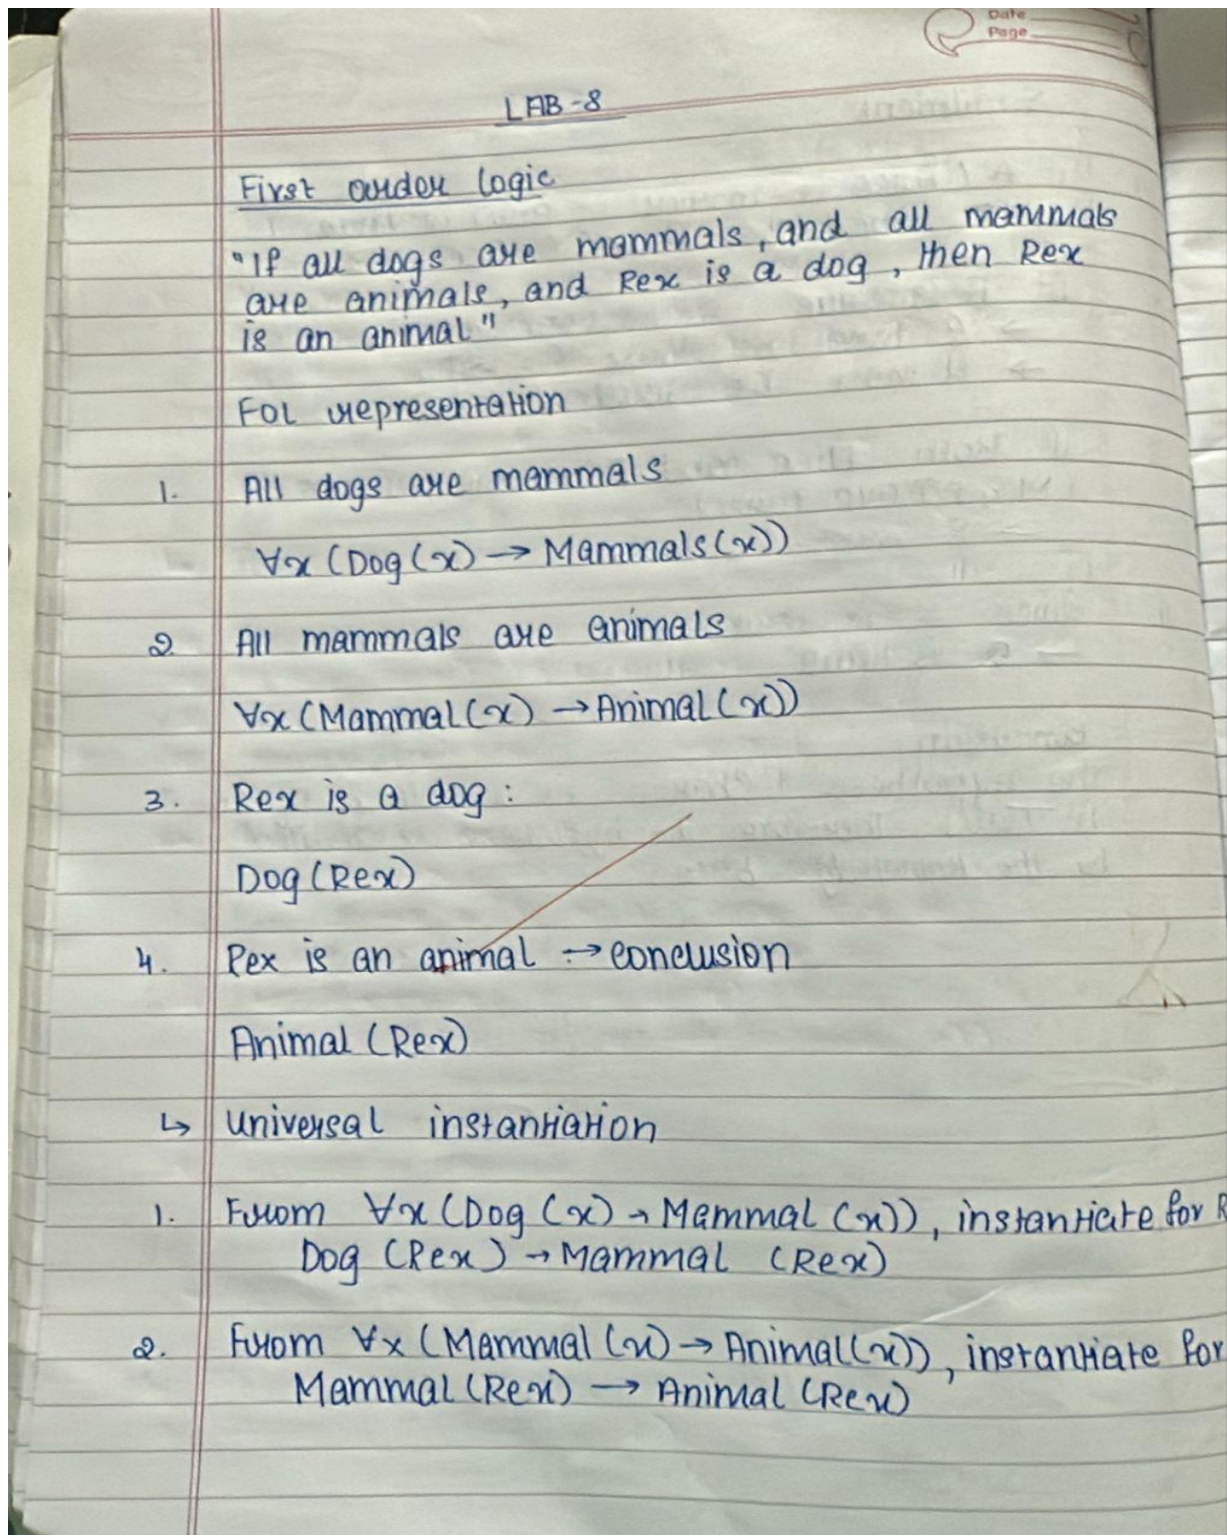 Date
Page
LAB-8
First order logic
"If all dogs are mammals, and all mammals
are animals, and Rex is a dog, then Rex
is an animal"
FOL representation
1. All dogs are mammals
∀x (Dog(x) → Mammals(x))
2 All mammals are animals
∀x (Mammal(x) → Animal(x))
3. Rex is a dog:
Dog (Rex)
4. Rex is an animal → conclusion
Animal (Rex)
↳ Universal instantiation
1. From ∀x (Dog (x) → Mammal (x)), instantiate for R
Dog (Rex) → Mammal (Rex)
2. From ∀x (Mammal (x) → Animal(x)), instantiate for
Mammal (Rex) → Animal (Rex)